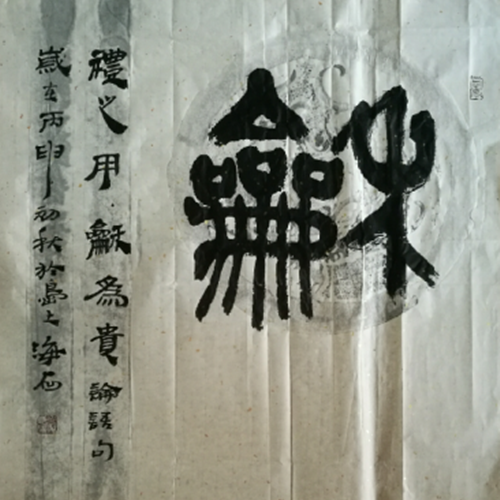 龢
禮之用龢為貴論語句
歲在丙申初秋於島上海石